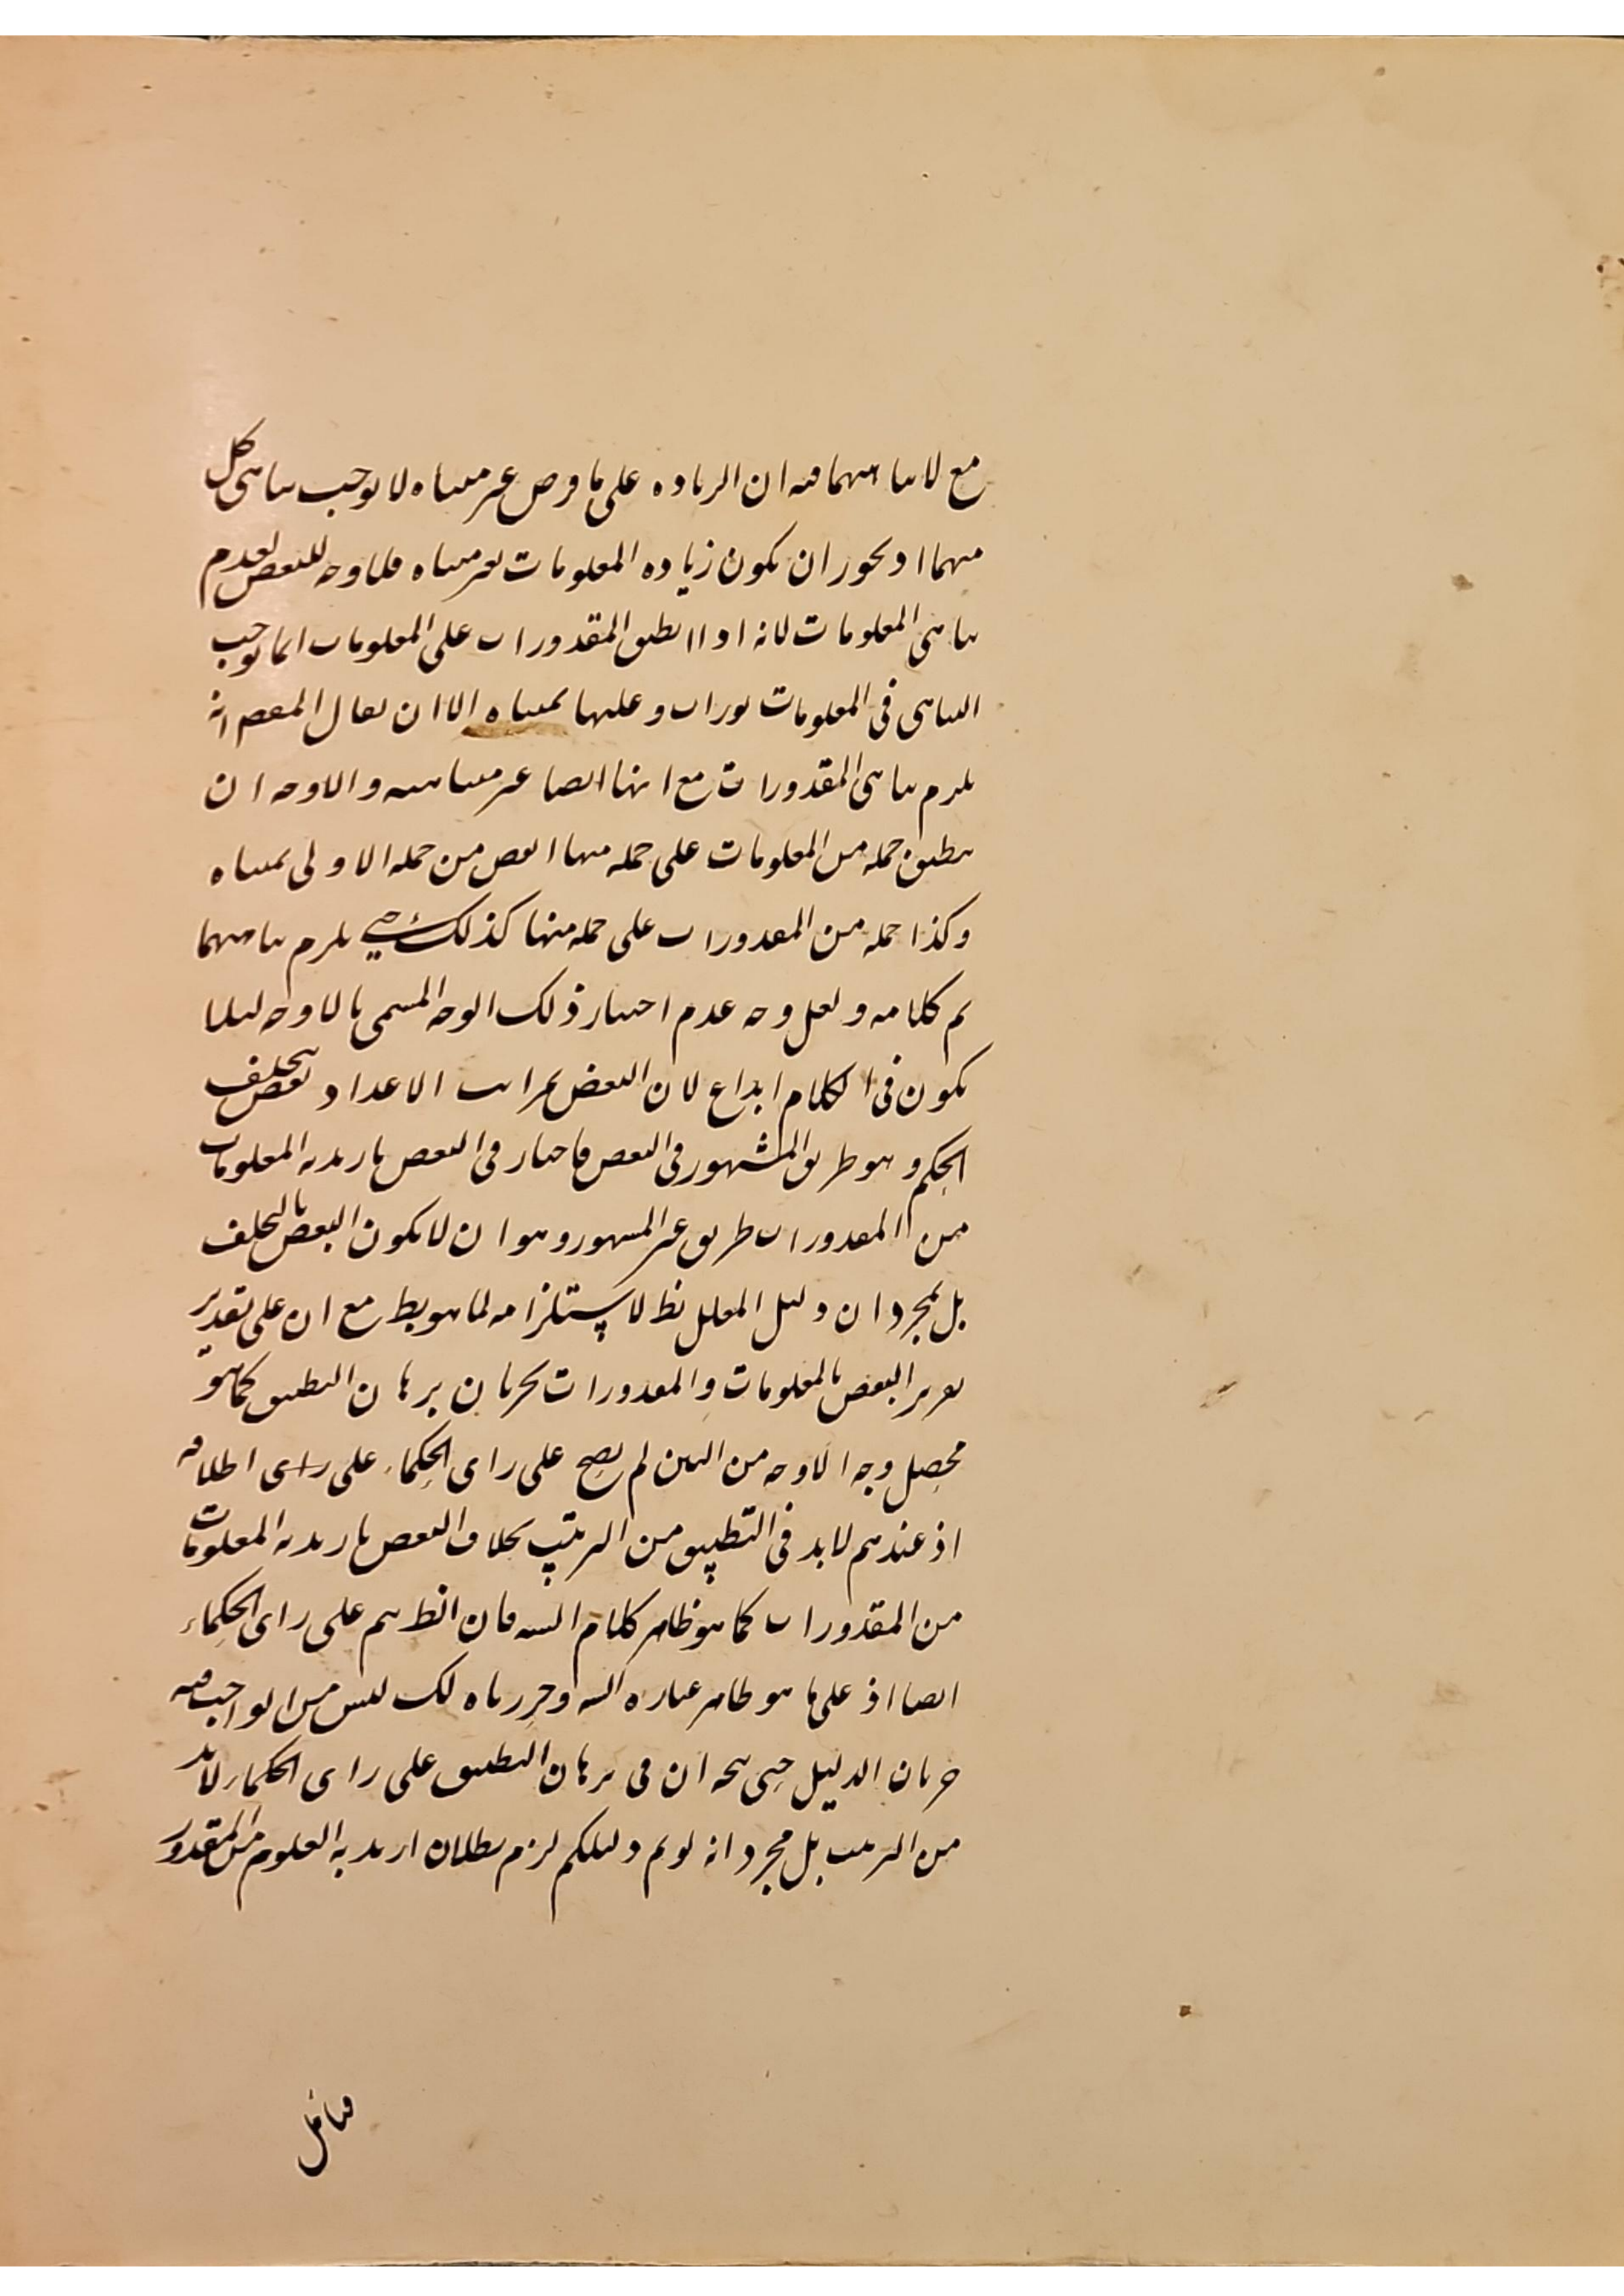 مع لاتناهيهما فيه ان الزياده على ما فرض غير متناه لا يوجب تناهى كل
منهما اذ يجوز ان يكون زياده المعلومات بغير متناه فلا وجه للنقض لعدم
تناهى المعلومات لانه اذا انطبق المقدورات على المعلومات انما يوجب
التناهى فى المعلومات لو زاد وعليها بمتناه الا ان يقال المقصود انه
يلزم تناهى المقدورات مع انها ايضا غير متناهيه والاوجه ان
يطبق جمله من المعلومات على جمله منها انقص من جمله الاولى بمتناه
وكذا جمله من المقدورات على جمله منها كذلك حتى يلزم تناهيهما
تم كلامه ولعل وجه عدم اختيار ذلك الوجه المسمى بالاوجه ليلا
يكون فى الكلام ابداع لان النقض بمراتب الاعداد نقض بتخلف
الحكم وهو طريق المشهور فى النقض فاختار فى النقض بازيديه المعلومات
من المقدورات طريق غير المشهور وهو ان لا يكون النقض بالتخلف
بل بمجرد ان دليل المعلل بط لاستلزامه لما هو بط مع ان على تقدير
تقرير النقض بالمعلومات والمقدورات بجريان برهان التطبيق كما هو
محصل وجه الاوجه من البين لم يصح على راى الحكماء على راى اطلاقه
اذ عندهم لابد فى التطبيق من الترتيب بخلاف النقض بازيديه المعلومات
من المقدورات كما هو ظاهر كلام السيد فان انظ يتم على راى الحكماء
ايضا اذ على ما هو ظاهر عباره السيد وحررناه لك ليس من الواجب فيه
جريان الدليل حتى يتجه ان فى برهان التطبيق على راى الحكماء لابد
من الترتيب بل مجرد انه لو تم دليلكم لزم بطلان ازيديه المعلوم من المقدور
فتامل